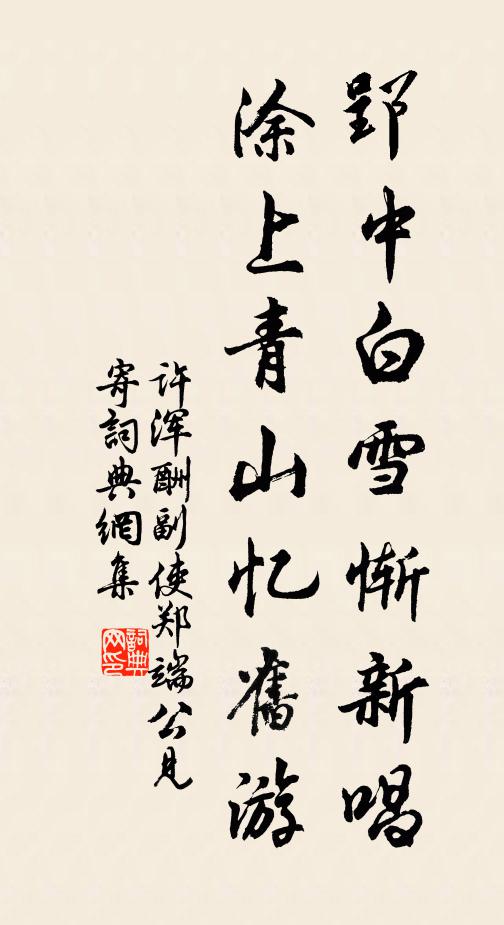 郢中白雪惭新唱
涂上青山忆舊游
许浑酬副使郑端公见
寄詞典網集
詞典
网印